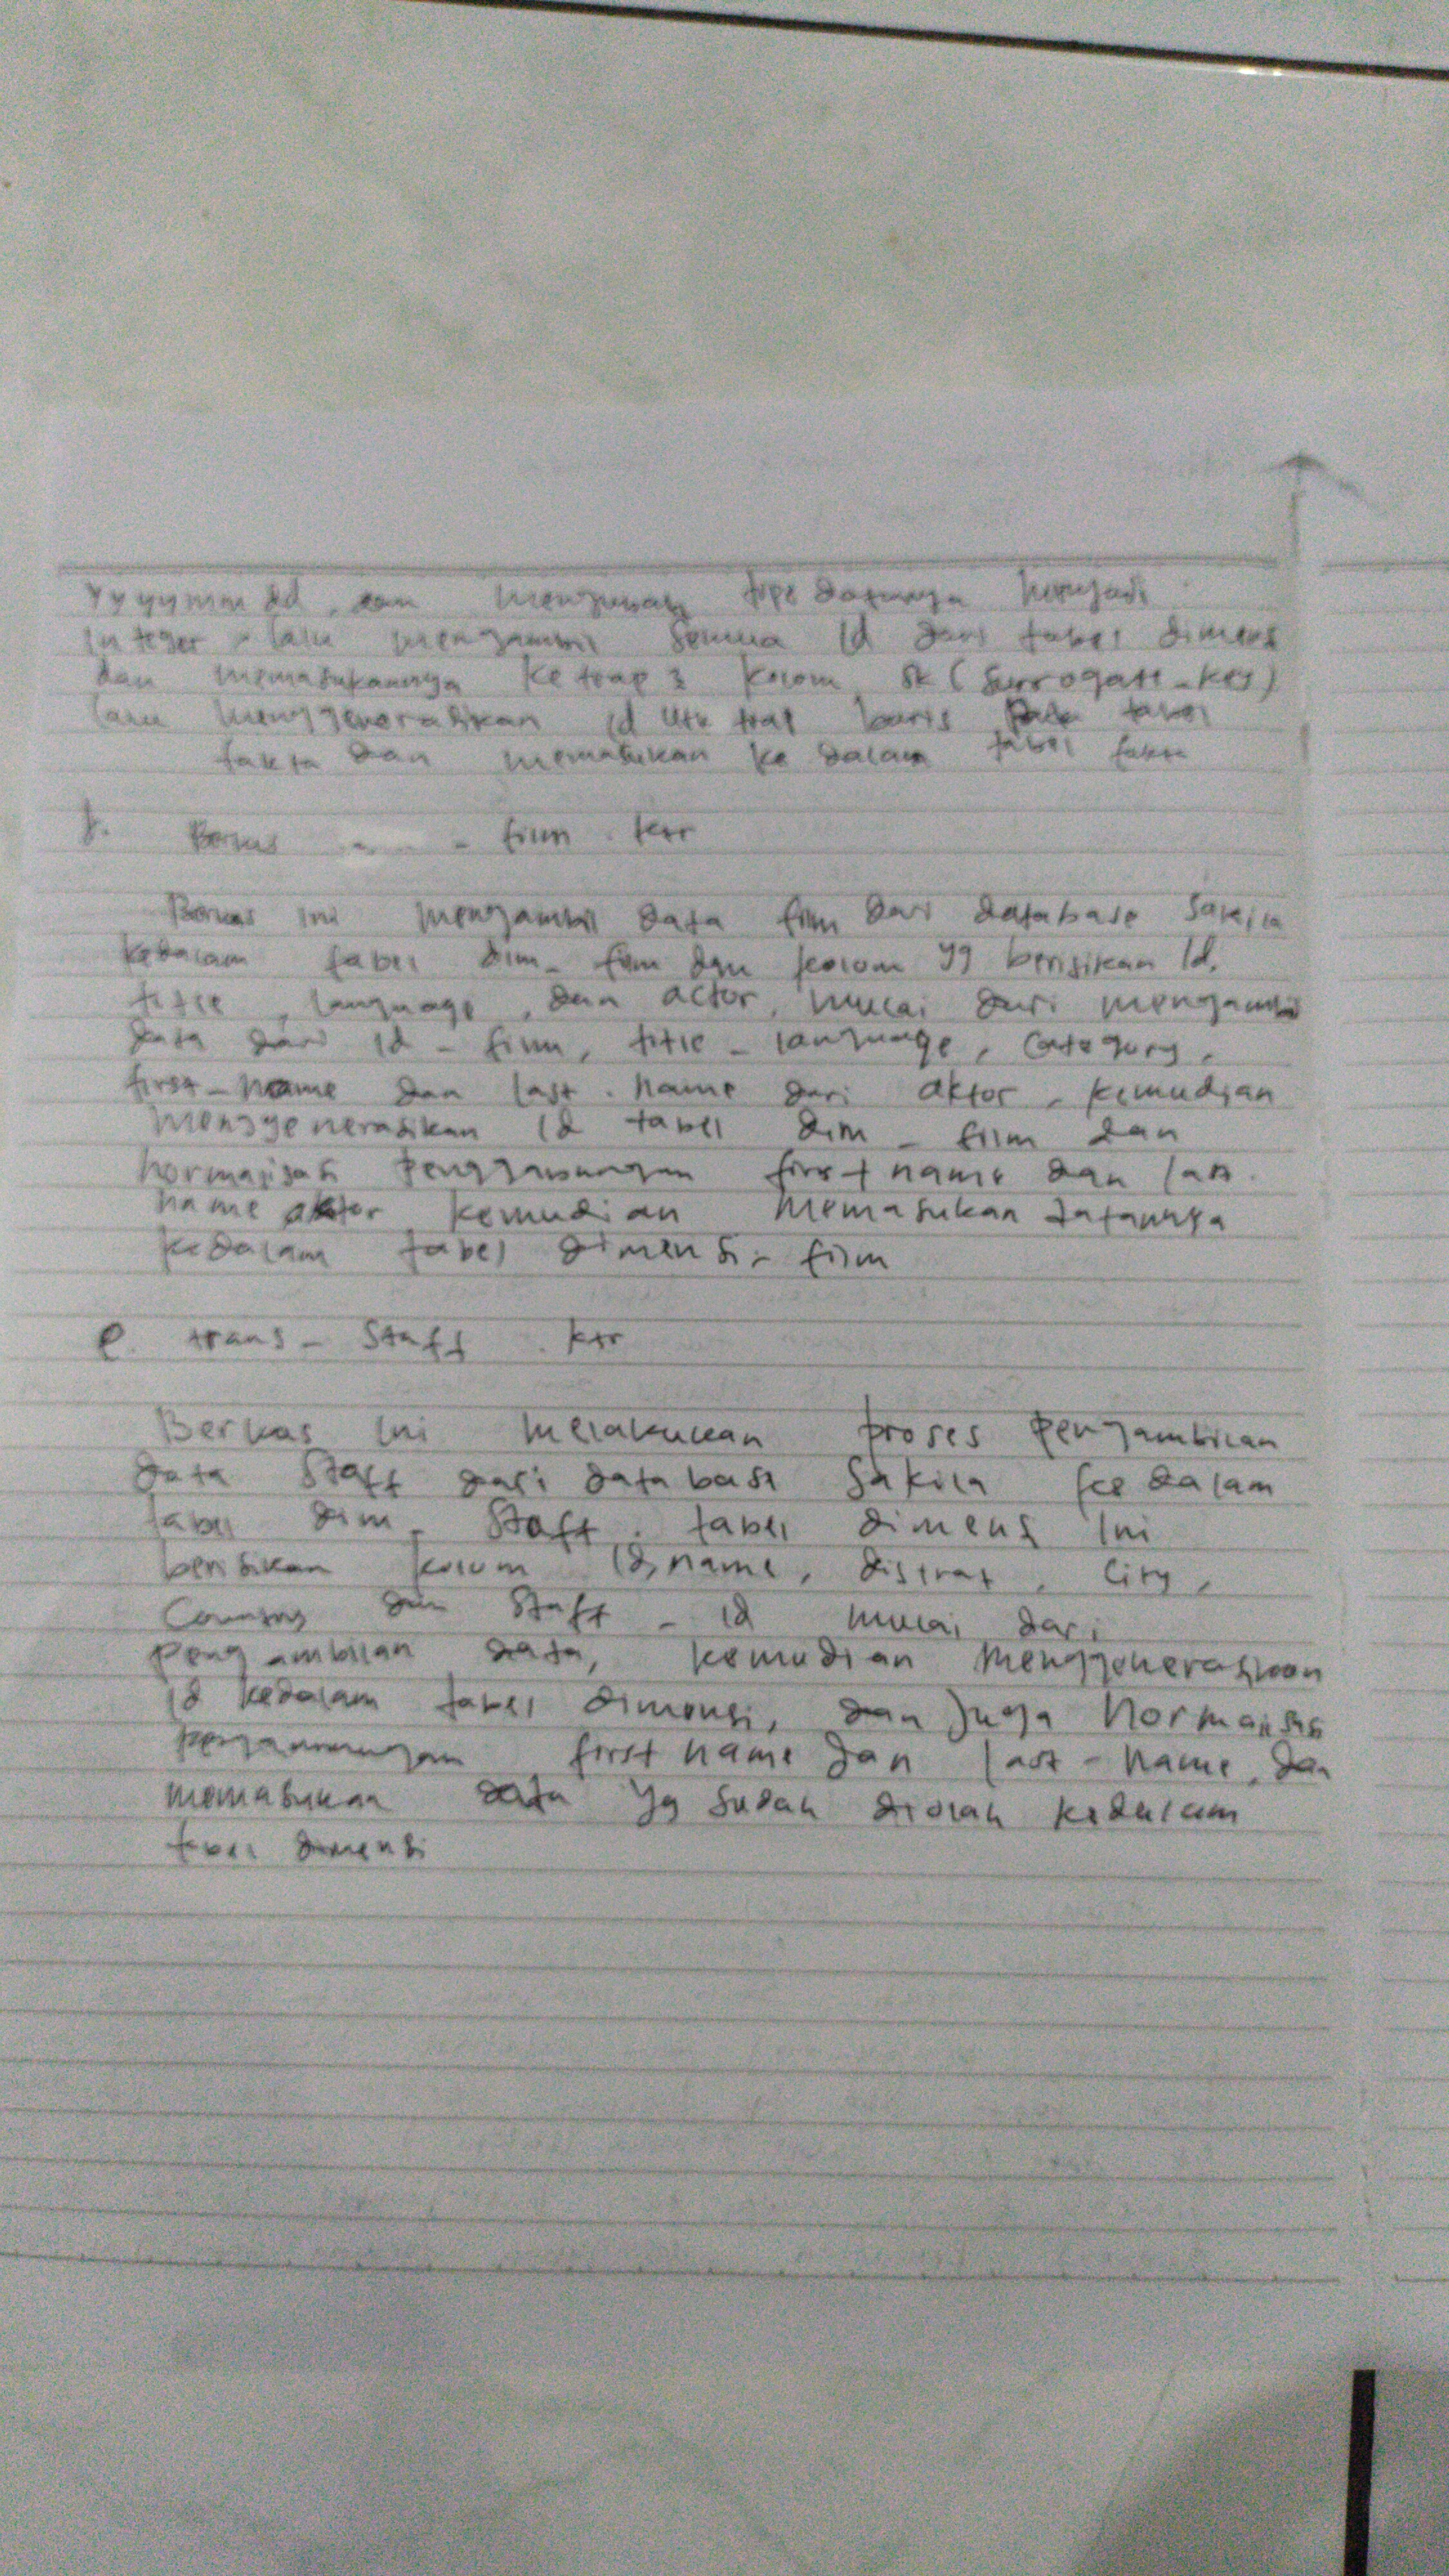 yyyymmdd, dan mengubah tipe datanya menjadi
integer. lalu mengambil semua id dari tabel dimensi
dan memasukannya ke tiap2 kolom sk (surrogate-key)
lalu menggenerasikan id utk tiap baris pada tabel
fakta dan memasukan ke dalam tabel fakta
film . ktr
Berkas ini mengambil data film dari database sakila
kedalam tabel dim_film dan kolom yg berisikan id,
title, language, dan actor, mulai dari mengambil
data dari id-film, title-language, category,
first-name dan last-name dari aktor, kemudian
menggenerasikan id tabel dim-film dan
normalisasi penggabungan first name dan last
name aktor kemudian memasukan datanya
kedalam tabel dimensi-film
e. trans-staff . ktr
Berkas ini melakukan proses pengambilan
data staff dari database sakila ke dalam
tabel dim_staff. tabel dimensi ini
berisikan kolom id, name, distrat, city,
Country dan staff-id mulai dari
pengambilan data, kemudian menggenerasikan
id kedalam tabel dimensi, dan juga normalisasi
first name dan last-name, dan
memasukan data yg sudah diolah kedalam
tabel dimensi